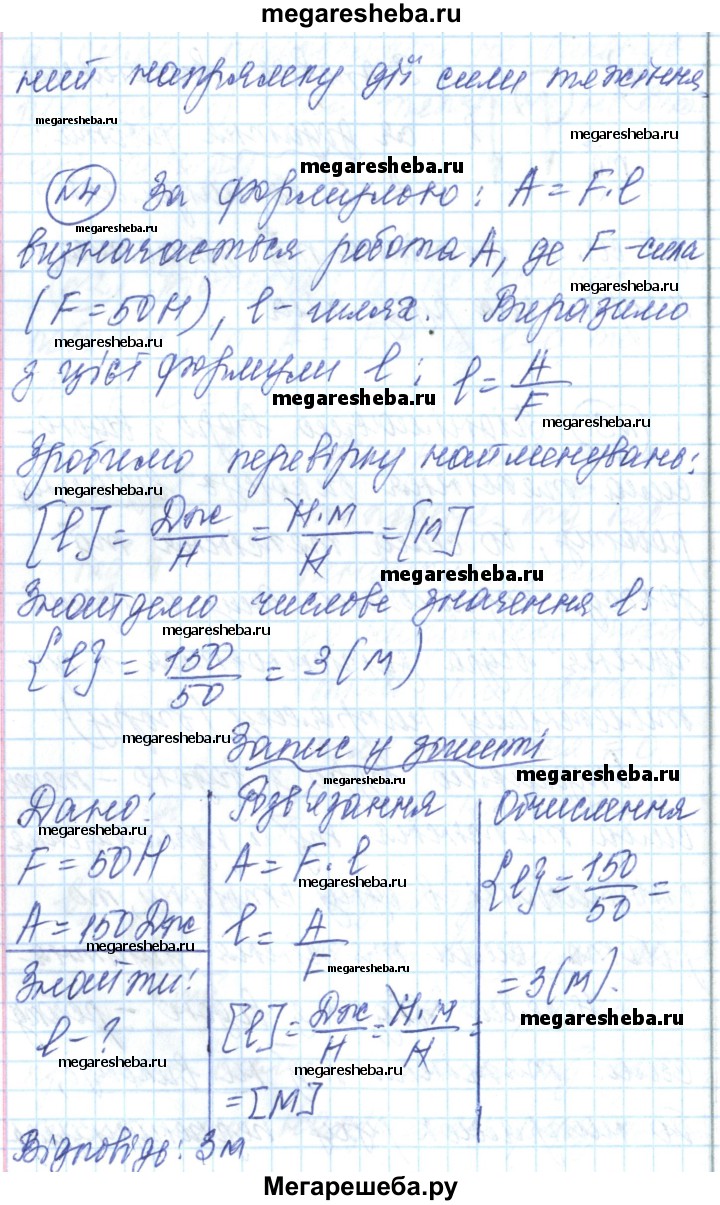 megaresheba.ru
ний напрямку дії сили тяжіння
megaresheba.ru
megaresheba.ru
megaresheba.ru
№4 За формулою: A = F·l
megaresheba.ru
визначається робота A, де F - сила
(F = 50 Н), l - шлях. Виразимо
megaresheba.ru
з цієї формули l: l = A/F
megaresheba.ru
megaresheba.ru
Зробимо перевірку найменувань:
megaresheba.ru
[l] = Дж/Н = Н·м/Н = [м]
megaresheba.ru
Знайдемо числове значення l:
megaresheba.ru
{l} = 150/50 = 3 (м)
megaresheba.ru
Запис у зошиті
megaresheba.ru
megaresheba.ru
Дано: Розв'язання Обчислення
megaresheba.ru
F = 50 Н A = F·l {l} = 150/50 =
megaresheba.ru
A = 150 Дж l = A/F
megaresheba.ru
megaresheba.ru
Знайти: = 3 (м).
megaresheba.ru
l - ? [l] = Дж/Н = Н·м/Н =
megaresheba.ru
= [м]
Відповідь: 3 м
Мегарешеба.ру